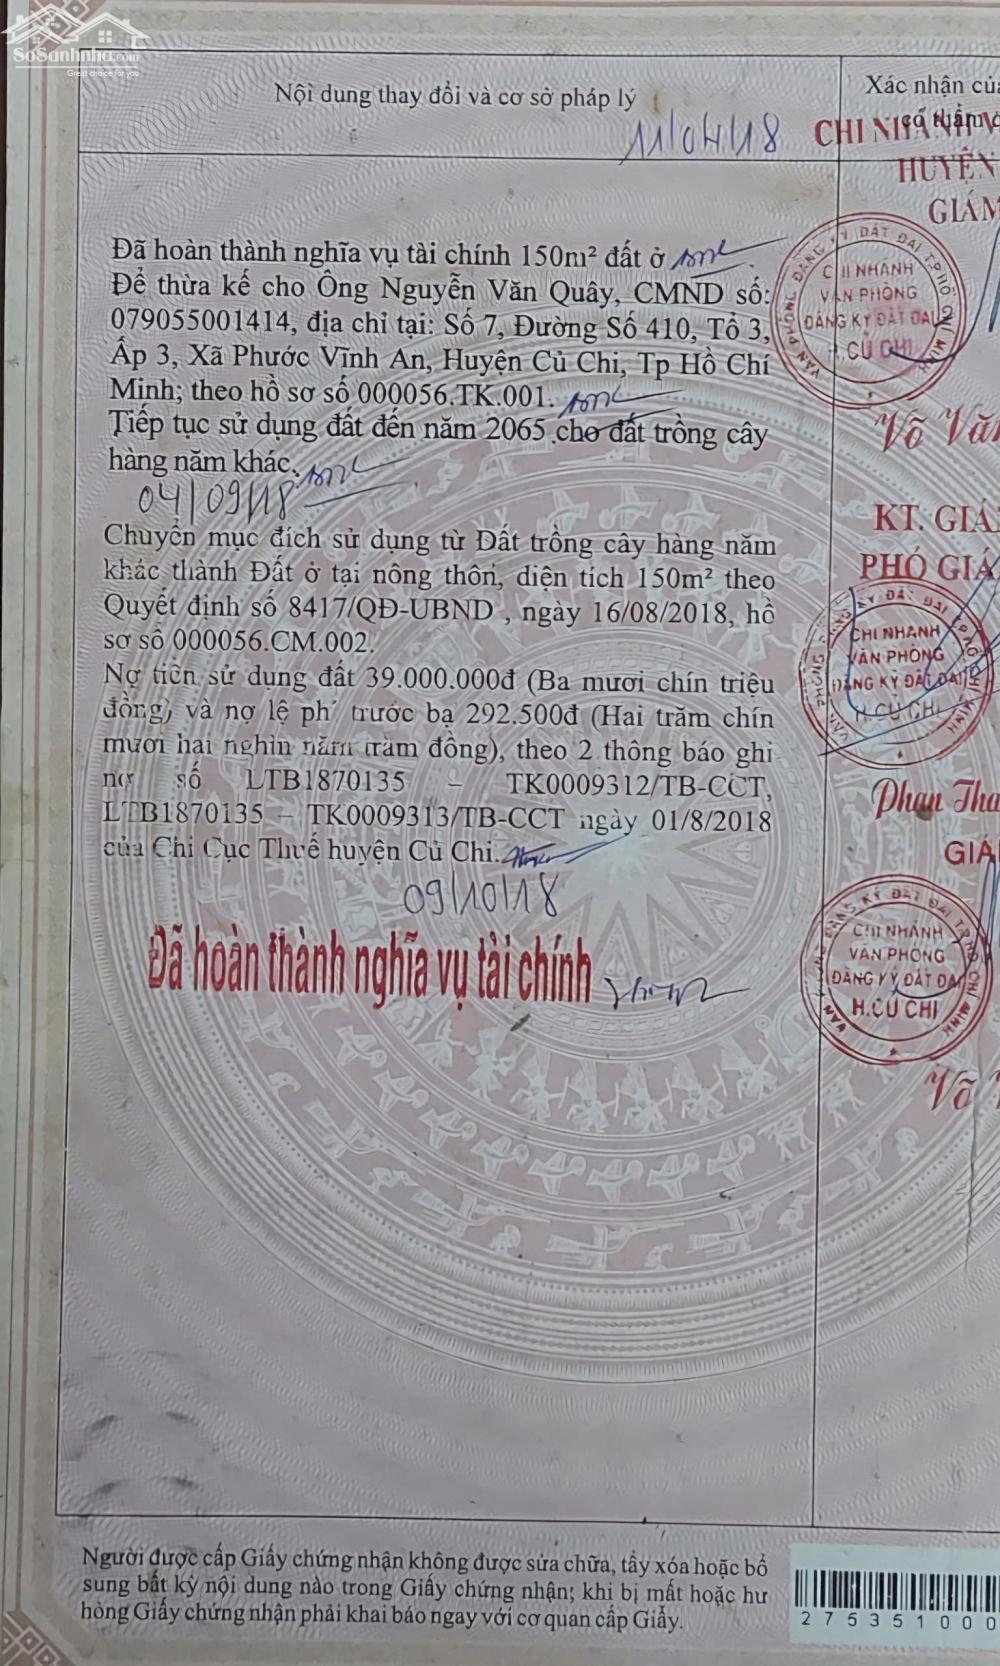 SoSanhnha.com
Great choice for you
Nội dung thay đổi và cơ sở pháp lý
Xác nhận của
có thẩm
11/04/18
CHI NHÁNH V
HUYỆN
GIÁM
Đã hoàn thành nghĩa vụ tài chính 150m² đất ở
Để thừa kế cho Ông Nguyễn Văn Quây, CMND số:
079055001414, địa chỉ tại: Số 7, Đường Số 410, Tổ 3,
Ấp 3, Xã Phước Vĩnh An, Huyện Củ Chi, Tp Hồ Chí
Minh; theo hồ sơ số 000056.TK.001.
VĂN PHÒNG ĐĂNG KÝ ĐẤT ĐAI T.PHỐ HỒ CHÍ MINH
CHI NHÁNH
VĂN PHÒNG
ĐĂNG KÝ ĐẤT ĐAI
H.CỦ CHI
Võ Văn
Tiếp tục sử dụng đất đến năm 2065 cho đất trồng cây
hàng năm khác.
04/09/18
KT. GIÁ
PHÓ GIÁ
Chuyển mục đích sử dụng từ Đất trồng cây hàng năm
khác thành Đất ở tại nông thôn, diện tích 150m² theo
Quyết định số 8417/QĐ-UBND , ngày 16/08/2018, hồ
sơ số 000056.CM.002.
Nợ tiền sử dụng đất 39.000.000đ (Ba mươi chín triệu
đồng) và nợ lệ phí trước bạ 292.500đ (Hai trăm chín
mươi hai nghìn năm trăm đồng), theo 2 thông báo ghi
nợ số LTB1870135 – TK0009312/TB-CCT,
LTB1870135 – TK0009313/TB-CCT ngày 01/8/2018
của Chi Cục Thuế huyện Củ Chi.
VĂN PHÒNG ĐĂNG KÝ ĐẤT ĐAI T.PHỐ HỒ CHÍ MINH
CHI NHÁNH
VĂN PHÒNG
ĐĂNG KÝ ĐẤT ĐAI
H.CỦ CHI
Phan Tha
GIÁ
09/10/18
Đã hoàn thành nghĩa vụ tài chính
VĂN PHÒNG ĐĂNG KÝ ĐẤT ĐAI T.PHỐ HỒ CHÍ MINH
CHI NHÁNH
VĂN PHÒNG
ĐĂNG KÝ ĐẤT ĐA
H.CỦ CHI
Võ
Người được cấp Giấy chứng nhận không được sửa chữa, tẩy xóa hoặc bổ
sung bất kỳ nội dung nào trong Giấy chứng nhận; khi bị mất hoặc hư
hỏng Giấy chứng nhận phải khai báo ngay với cơ quan cấp Giấy.
275351000